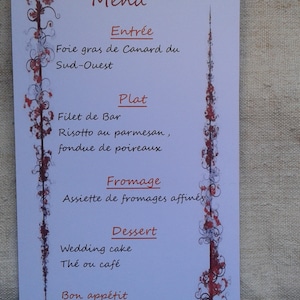 Menu
Entrée
Foie gras de Canard du
Sud-Ouest
Plat
Filet de Bar
Risotto au parmesan ,
fondue de poireaux
Fromage
Assiette de fromages affinés
Dessert
Wedding cake
Thé ou café
Bon appétit